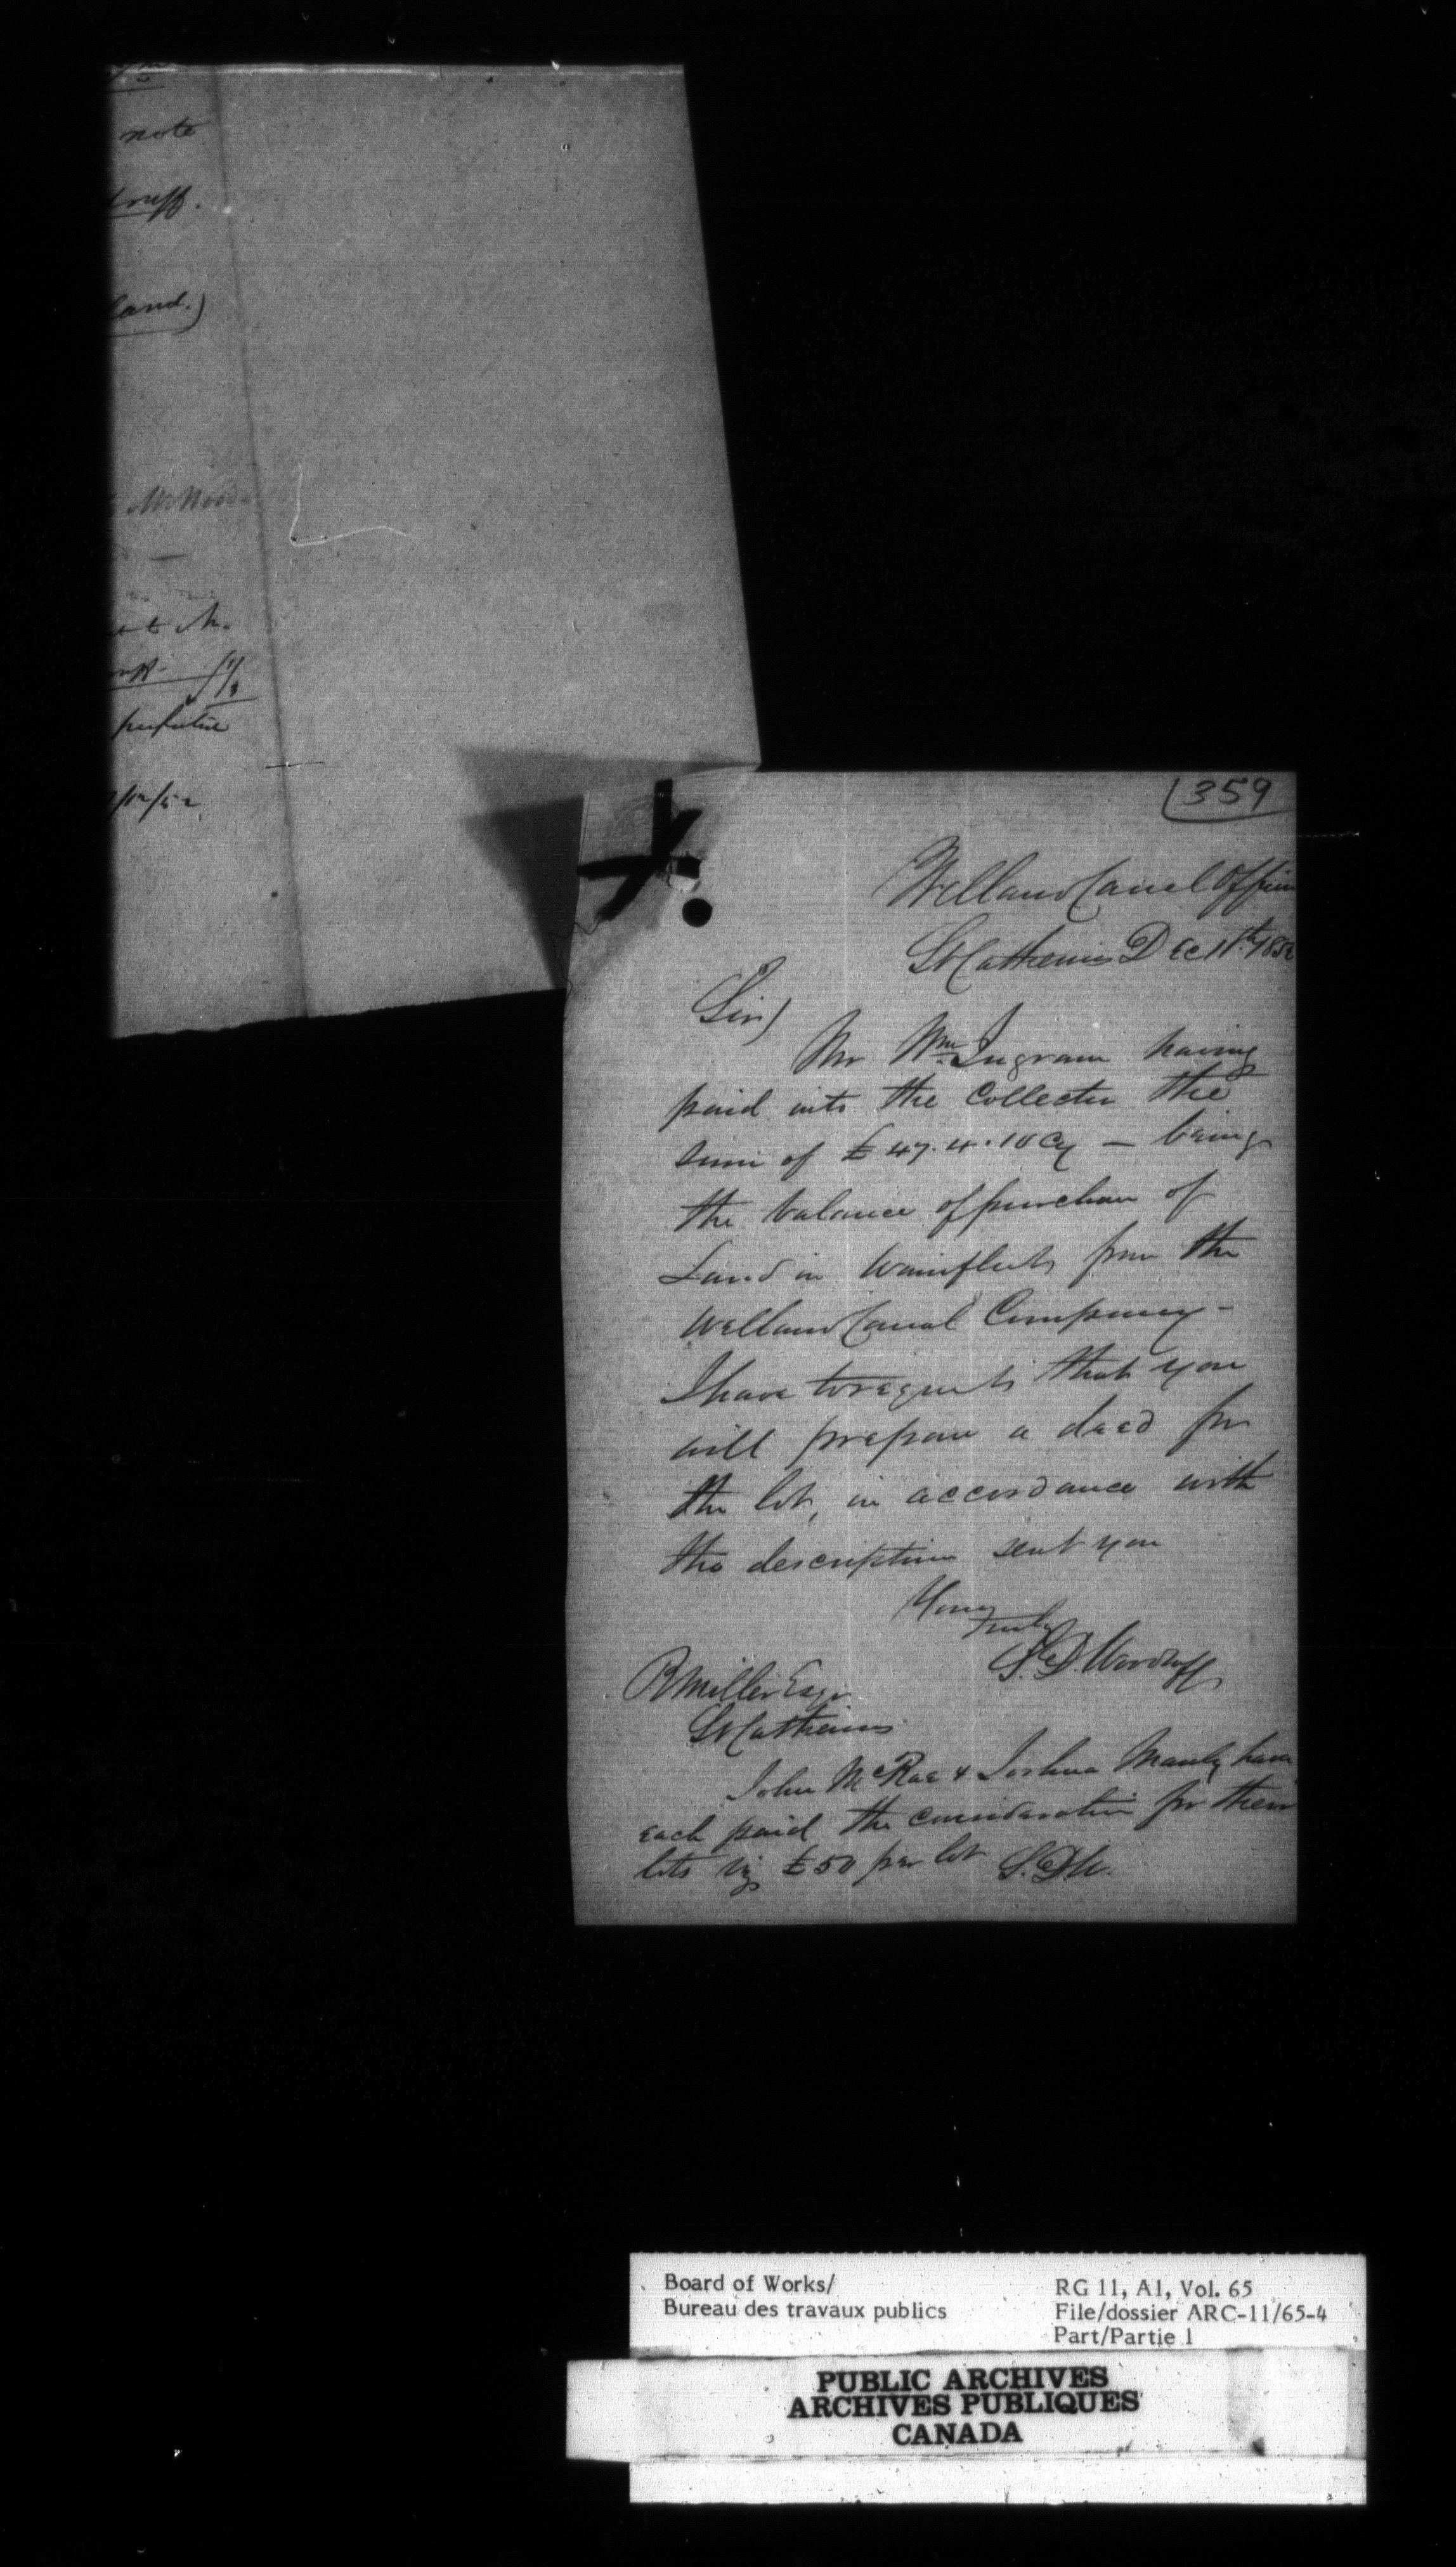 note
land.)
359
Welland Canal Office
St Catherines Dec 11th 1852
Sir)
Mr Wm Ingram having
paid into the Collector the
sum of £47.4.10 Cy — being
the balance of purchase of
Land in Wainfleets from the
Welland Canal Company-
I have to request that you
will prepare a deed for
the lot, in accordance with
the description sent you
Yours
Truly
S. D. Woodruff
R Miller Esqr
St Catherines
John McRae & Joshua Manly have
each paid the consideration for their
lots viz £50 per lot S. D W.
Board of Works/
Bureau des travaux publics
RG 11, A1, Vol. 65
File/dossier ARC-11/65-4
Part/Partie 1
PUBLIC ARCHIVES
ARCHIVES PUBLIQUES
CANADA